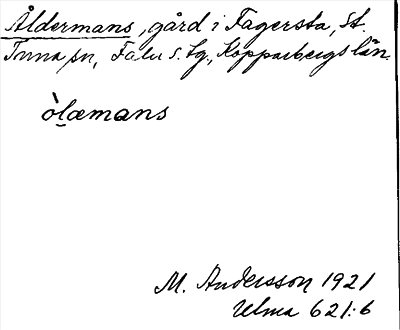 Åldermans, gård i Fagersta, St.
Tuna sn, Falu s. lg., Kopparbergs län.
òlæmans
M. Andersson 1921
Ulma 621:6